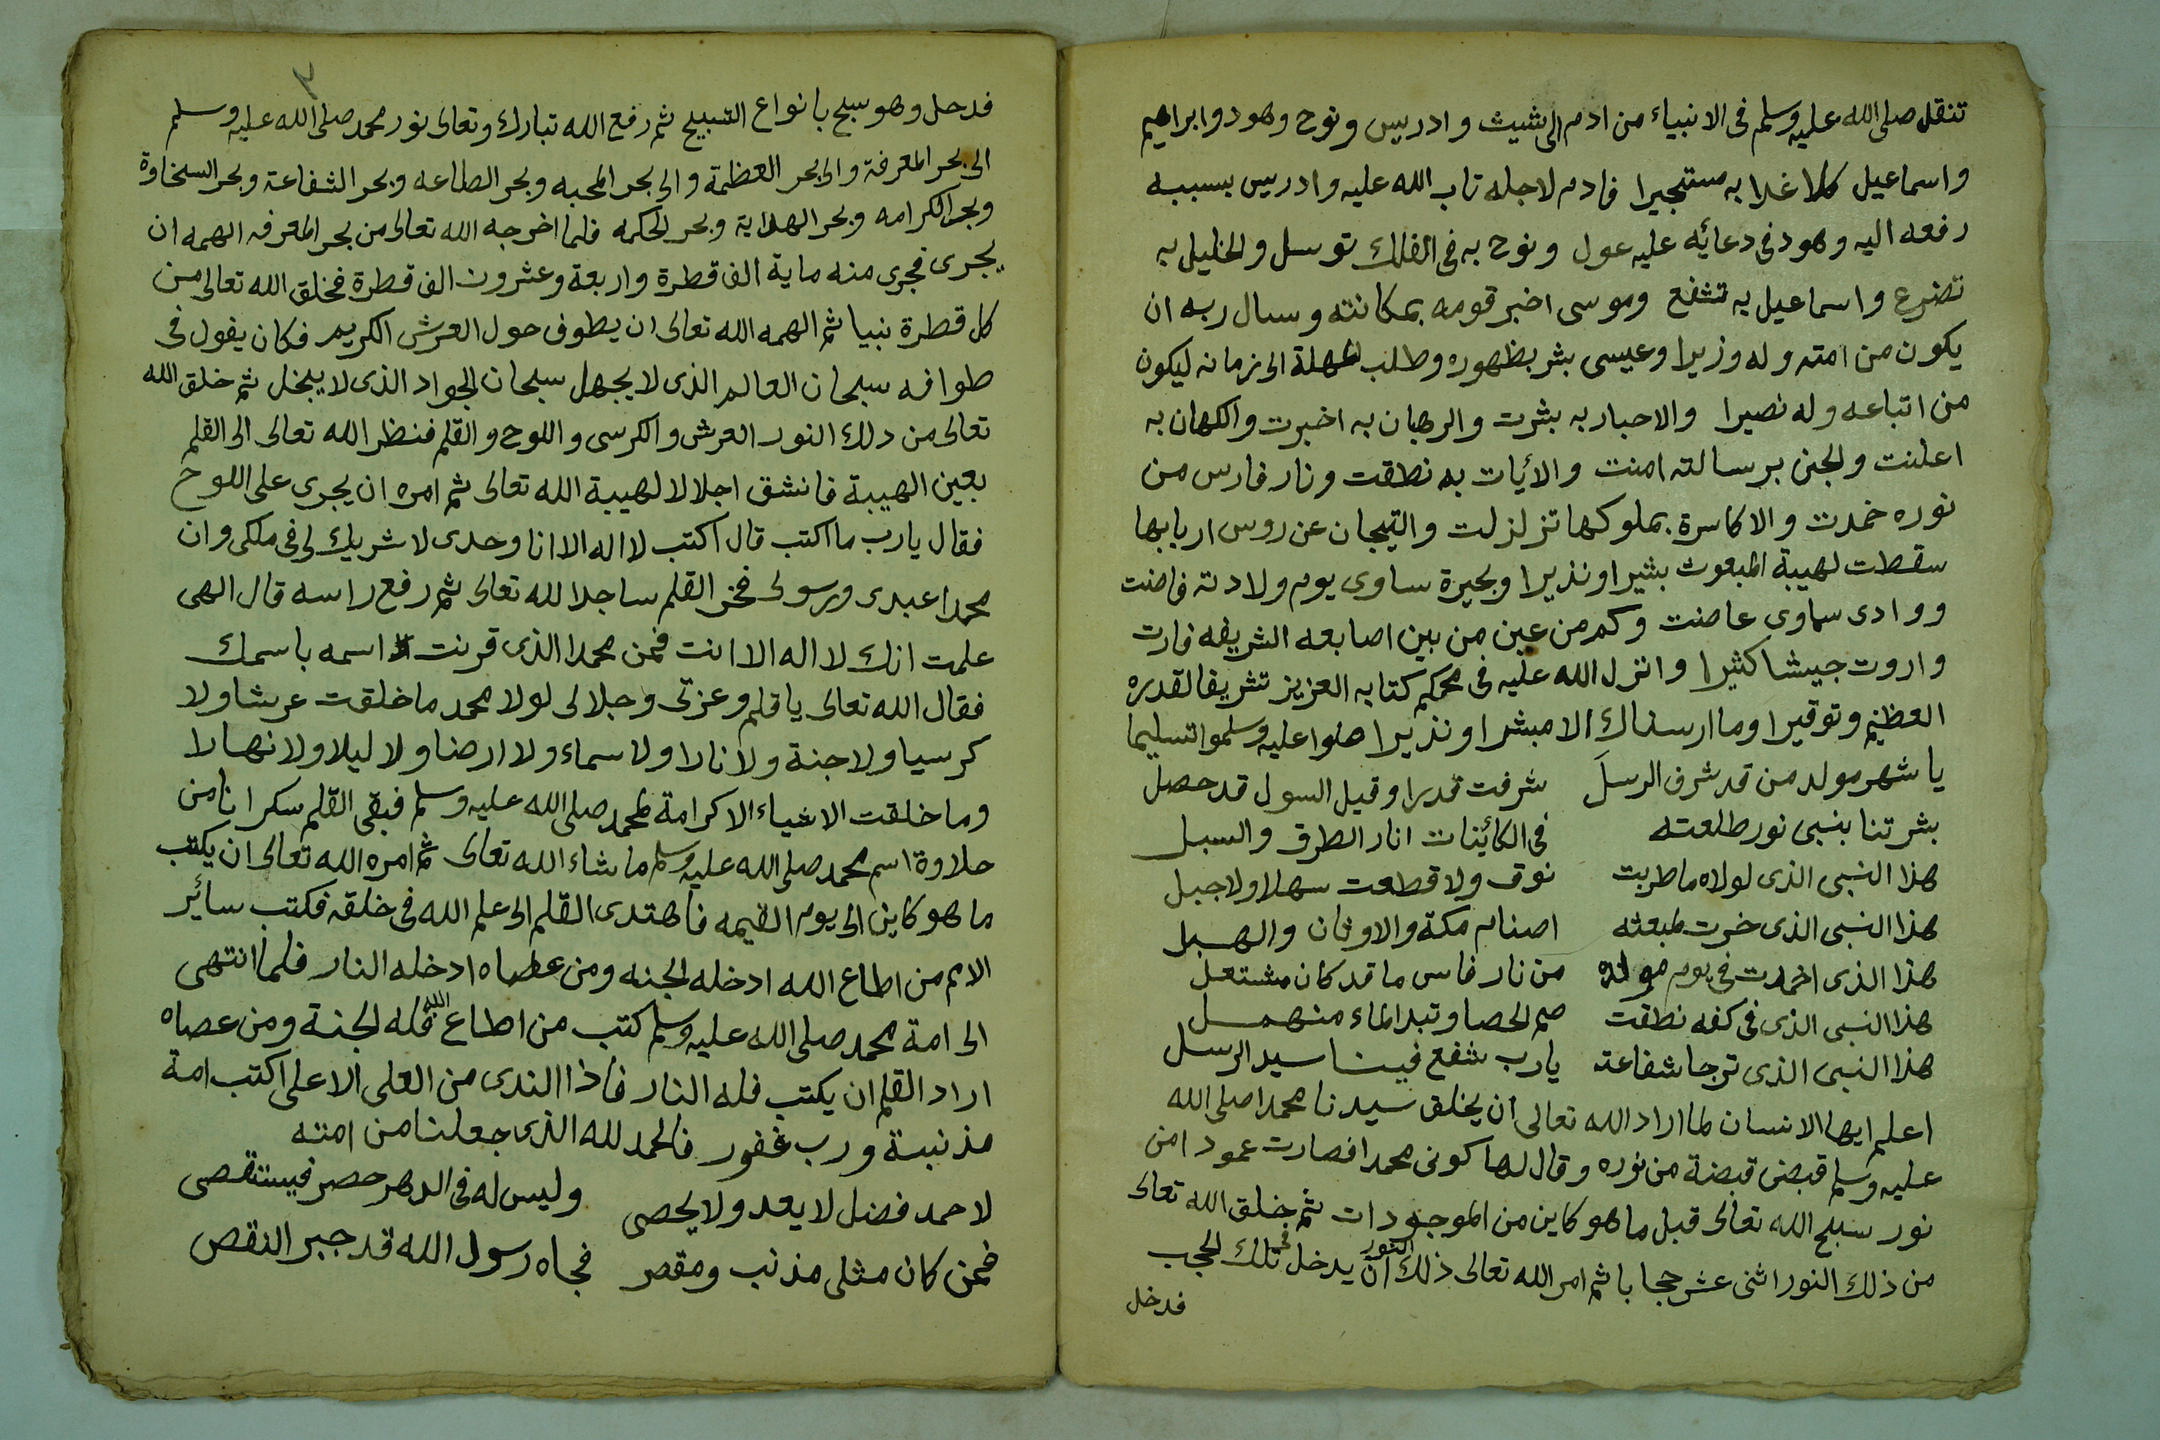 تنقل صلى الله عليه وسلم فى الانبياء من ادم الى شيث وادريس ونوح وهود وابراهيم
واسماعيل كلا غدا به مستجيرا فادم لاجله تاب الله عليه وادريس بسببه
رفعه اليه وهود فى دعائه عليه عول ونوح به فى الفلك توسل والخليل به
تضرع واسماعيل به تشفع وموسى اخبر قومه بمكانته وسال ربه ان
يكون من امته وله وزيرا وعيسى بشر بظهوره وطلب لمهلة الى زمانه ليكون
من اتباعه وله نصيرا والاحبار به بشرت والرهبان به اخبرت والكهان به
اعلنت والجن برسالته امنت والأيات به نطقت ونار فارس من
نوره خمدت والاكاسرة بملوكها تزلزلت والتيجان عن روس اربابها
سقطت لهيبة المبعوث بشيرا ونذيرا وبحيرة ساوى يوم ولادته فاضت
ووادى سماوى غاضت وكم من عين من بين اصابعه الشريفه فارت
واروت جيشا كثيرا وانزل الله عليه فى محكم كتابه العزيز تشريفا لقدره
العظيم وتوقيرا وما ارسلناك الا مبشرا ونذيرا صلوا عليه وسلموا تسليما
يا شهر مولد من قد شرف الرسل شرفت قدرا وقيل السول قد حصل
بشرتنا بنبى نور طلعته فى الكائينات انار الطرق والسبل
هذا النبى الذى لولاه ما طربت نوق ولا قطعت سهلا ولا جبل
هذا النبى الذى خرت لمبعثه اصنام مكة والاوثان والهبل
هذا الذى اخمدت فى يوم مولده من نار فاس ما قد كان مشتعل
هذا النبى الذى فى كفه نطقت صم الحصا وتبدا الماء منهمل
هذا النبى الذى ترجا شفاعته يارب شفع فينا سيد الرسل
اعلم ايها الانسان لما اراد الله تعالى ان يخلق سيدنا محمدا صلى الله
عليه وسلم قبض قبضة من نوره وقال لها كونى محمدا فصارت عمودا من
نور سبح الله تعالى قبل ما هو كاين من الموجودات ثم خلق الله تعالى
من ذلك النور اثنى عشر حجابا ثم امر الله تعالى ذلك النور ان يدخل فى تلك الحجب
فدخل
٢
فدخل وهو سبح بانواع التسبيح ثم رفع الله تبارك وتعالى نور محمد صلى الله عليه وسلم
الى بحر المعرفة والى بحر العظمة والى بحر المحبه وبحر الطاعه وبحر الشفاعة وبحر السخاوة
وبحر الكرامه وبحر الهداية وبحر الحكمه فلما اخرجه الله تعالى من بحر المعرفه الهمه ان
يجرى فجرى منه ماية الف قطرة واربعة وعشرون الف قطرة فخلق الله تعالى من
كل قطرة نبيا ثم الهمه الله تعالى ان يطوف حول العرش الكريم فكان يقول فى
طوافه سبحان العالم الذى لا يجهل سبحان الجواد الذى لا يبخل ثم خلق الله
تعالى من دلك النور العرش والكرسى واللوح والقلم فنظر الله تعالى الى القلم
بعين الهيبة فانشق اجلالا لهيبة الله تعالى ثم امره ان يجرى على اللوح
فقال يارب ما اكتب قال اكتب لا اله الا انا وحدى لا شريك لى فى ملكى وان
محمدا عبدى ورسولى فخر القلم ساجدا لله تعالى ثم رفع راسه قال الهى
علمت انك لا اله الا انت فمن محمدا الذى قرنت اسمه باسمك
فقال الله تعالى يا قلم وعزتى وجلالى لولا محمد ما خلقت عرشا ولا
كرسيا ولا جنة ولا نارا ولا سماء ولا ارضا ولا ليلا ولا نهارا
وما خلقت الاشياء الا كرامة لمحمد صلى الله عليه وسلم فبقى القلم سكرانا من
حلاوة اسم محمد صلى الله عليه وسلم ما شاء الله تعالى ثم امره الله تعالى ان يكتب
ما هو كاين الى يوم القيمه فاهتدى القلم الى علم الله فى خلقه فكتب سائر
الامم من اطاع الله ادخله الجنه ومن عصاه ادخله النار فلما انتهى
الى امة محمد صلى الله عليه وسلم كتب من اطاع الله فله الجنة ومن عصاه
اراد القلم ان يكتب فله النار فاذا الندى من العلى الاعلى اكتب امة
مذنبة ورب غفور فالحمد لله الذى جعلنا من امته
لاحمد فضل لا يعد ولا يحصى وليس له فى الدهر حصر فيستقصى
فمن كان مثلى مذنب ومقصر فجاه رسول الله قد جبر النقص